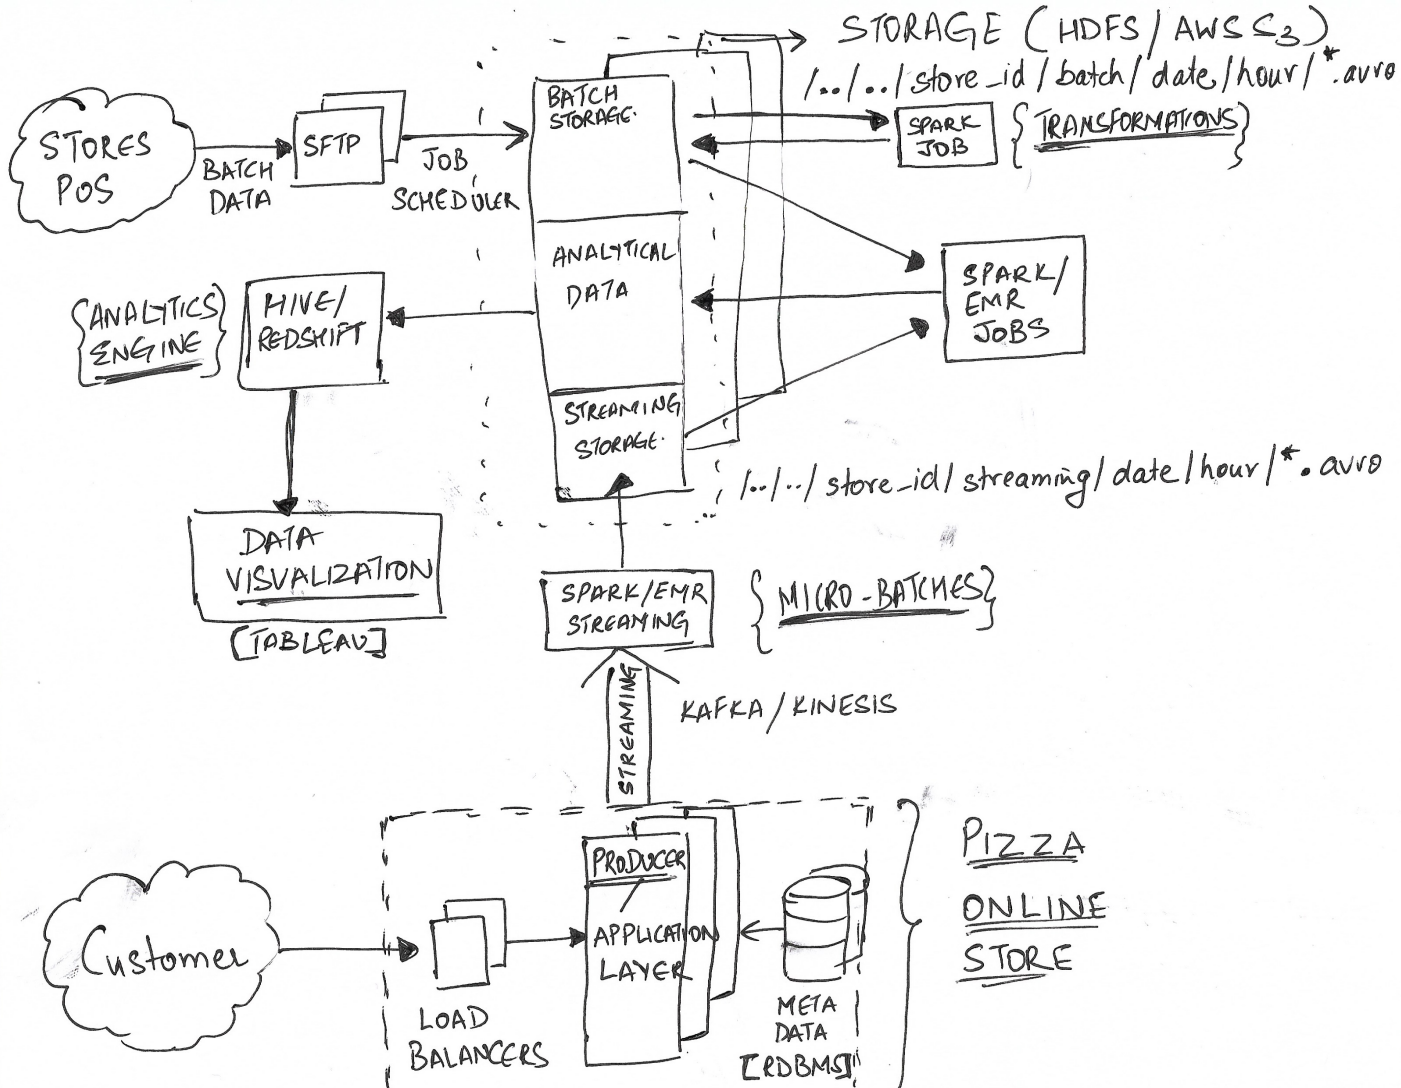 STORAGE (HDFS/AWS S3)
/../../store_id/batch/date/hour/*.avro
STORES
POS
BATCH
DATA
SFTP
JOB
SCHEDULER
BATCH
STORAGE.
SPARK
JOB
{TRANSFORMATIONS}
ANALYTICAL
DATA
SPARK/
EMR
JOBS
{ANALYTICS
ENGINE}
HIVE/
REDSHIFT
STREAMING
STORAGE.
/../../store_id/streaming/date/hour/*.avro
DATA
VISUALIZATION
[TABLEAU]
SPARK/EMR
STREAMING
{MICRO-BATCHES}
STREAMING
KAFKA/KINESIS
PRODUCER
APPLICATION
LAYER
Customer
LOAD
BALANCERS
META
DATA
[RDBMS]
PIZZA
ONLINE
STORE